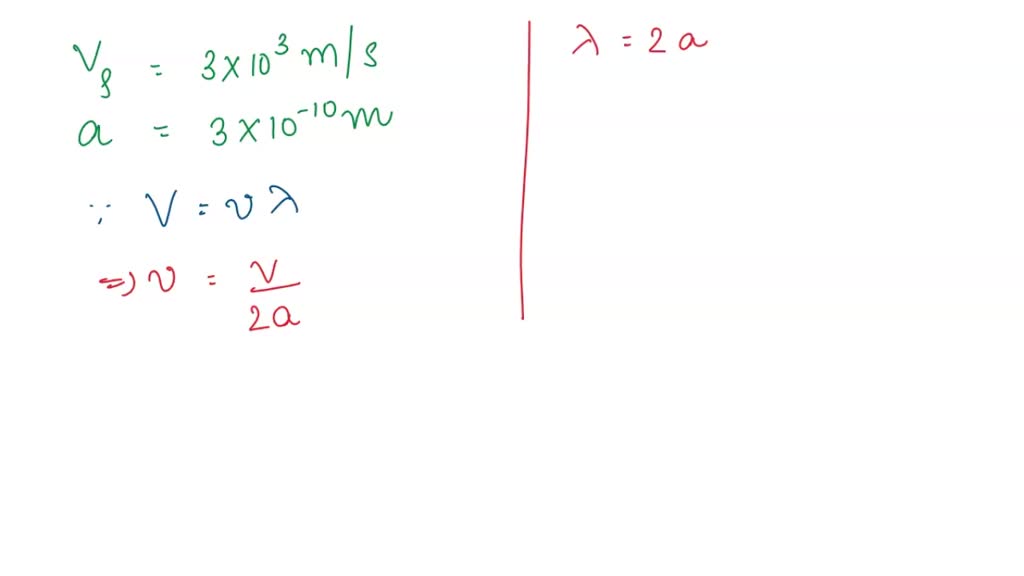 Vₛ = 3×10³ m/s
a = 3×10⁻¹⁰ m
∵ V = υλ
⇒ υ = V/2a
λ = 2a